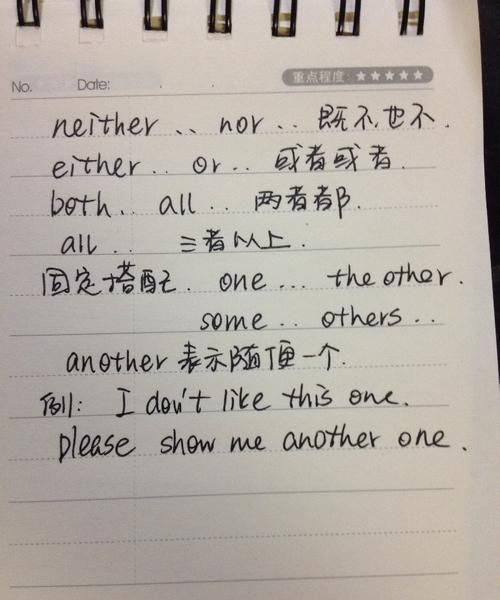 No. Date: 重点程度: ★★★★★
neither .. nor .. 既不也不.
either .. or .. 或者或者.
both.. all .. 两者都.
all .. 三者以上.
固定搭配. one ... the other.
some .. others ..
another 表示随便一个.
例: I don't like this one.
please show me another one.